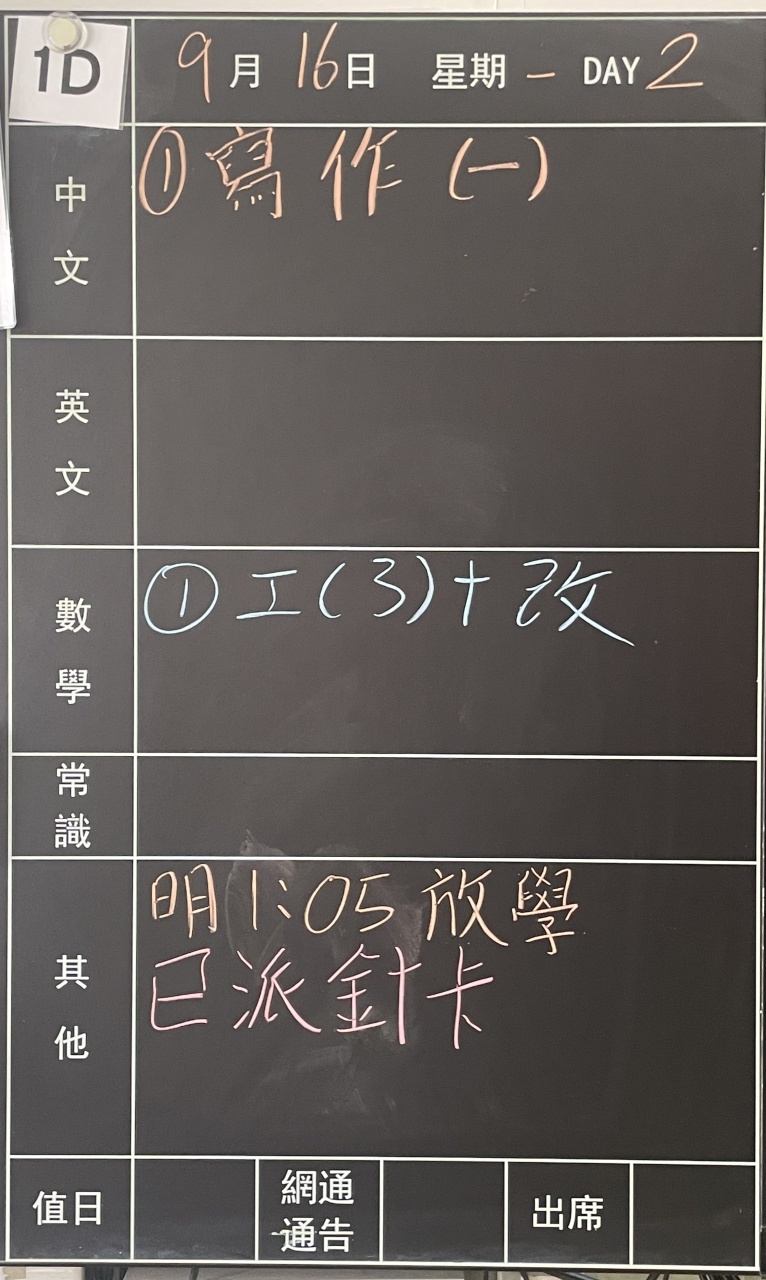 1D
9月16日 星期一 DAY 2
中文
①寫作(一)
英文
數學
①工(3)+改
常識
其他
明1:05放學
已派針卡
值日
網通
通告
出席